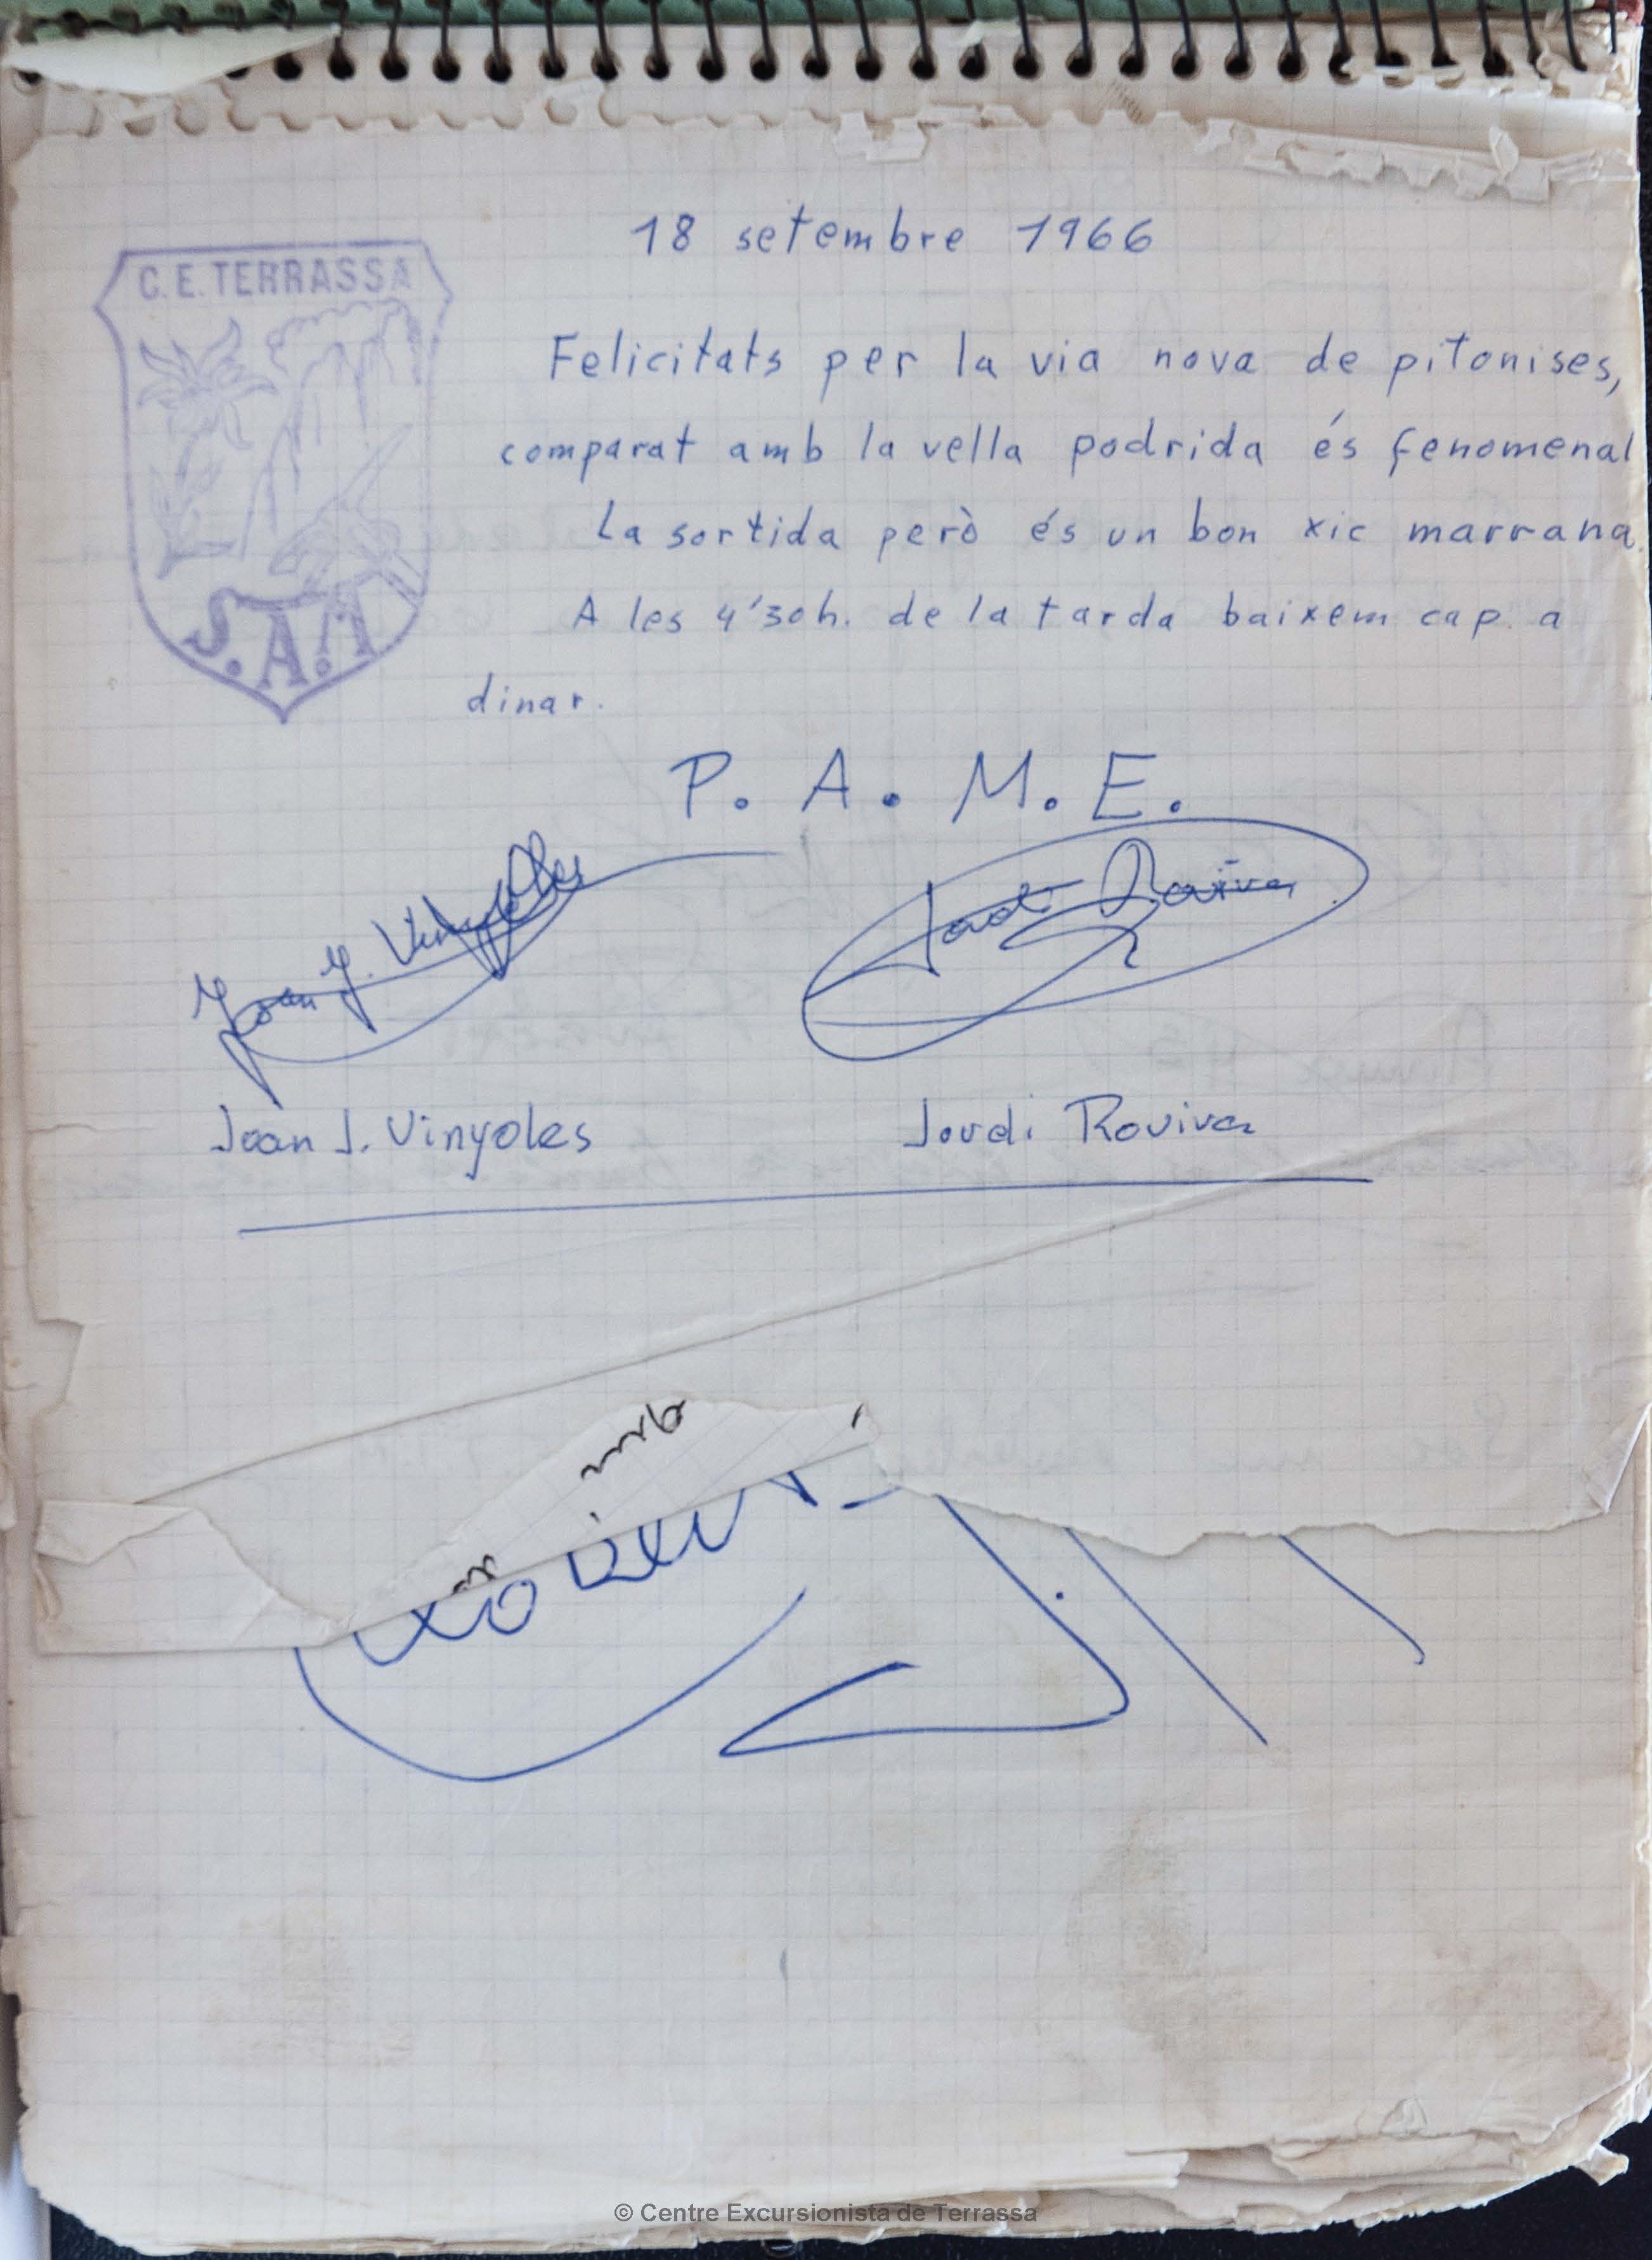 18 setembre 1966
C. E. TERRASSA
S.A.M
Felicitats per la via nova de pitonises,
comparat amb la vella podrida és fenomenal
La sortida però és un bon xic marrana.
A les 4'30h. de la tarda baixem cap a
dinar.
P. A. M. E.
Joan J. Vinyoles
Jordi Rovira
Joan J. Vinyoles
Jordi Rovira
© Centre Excursionista de Terrassa